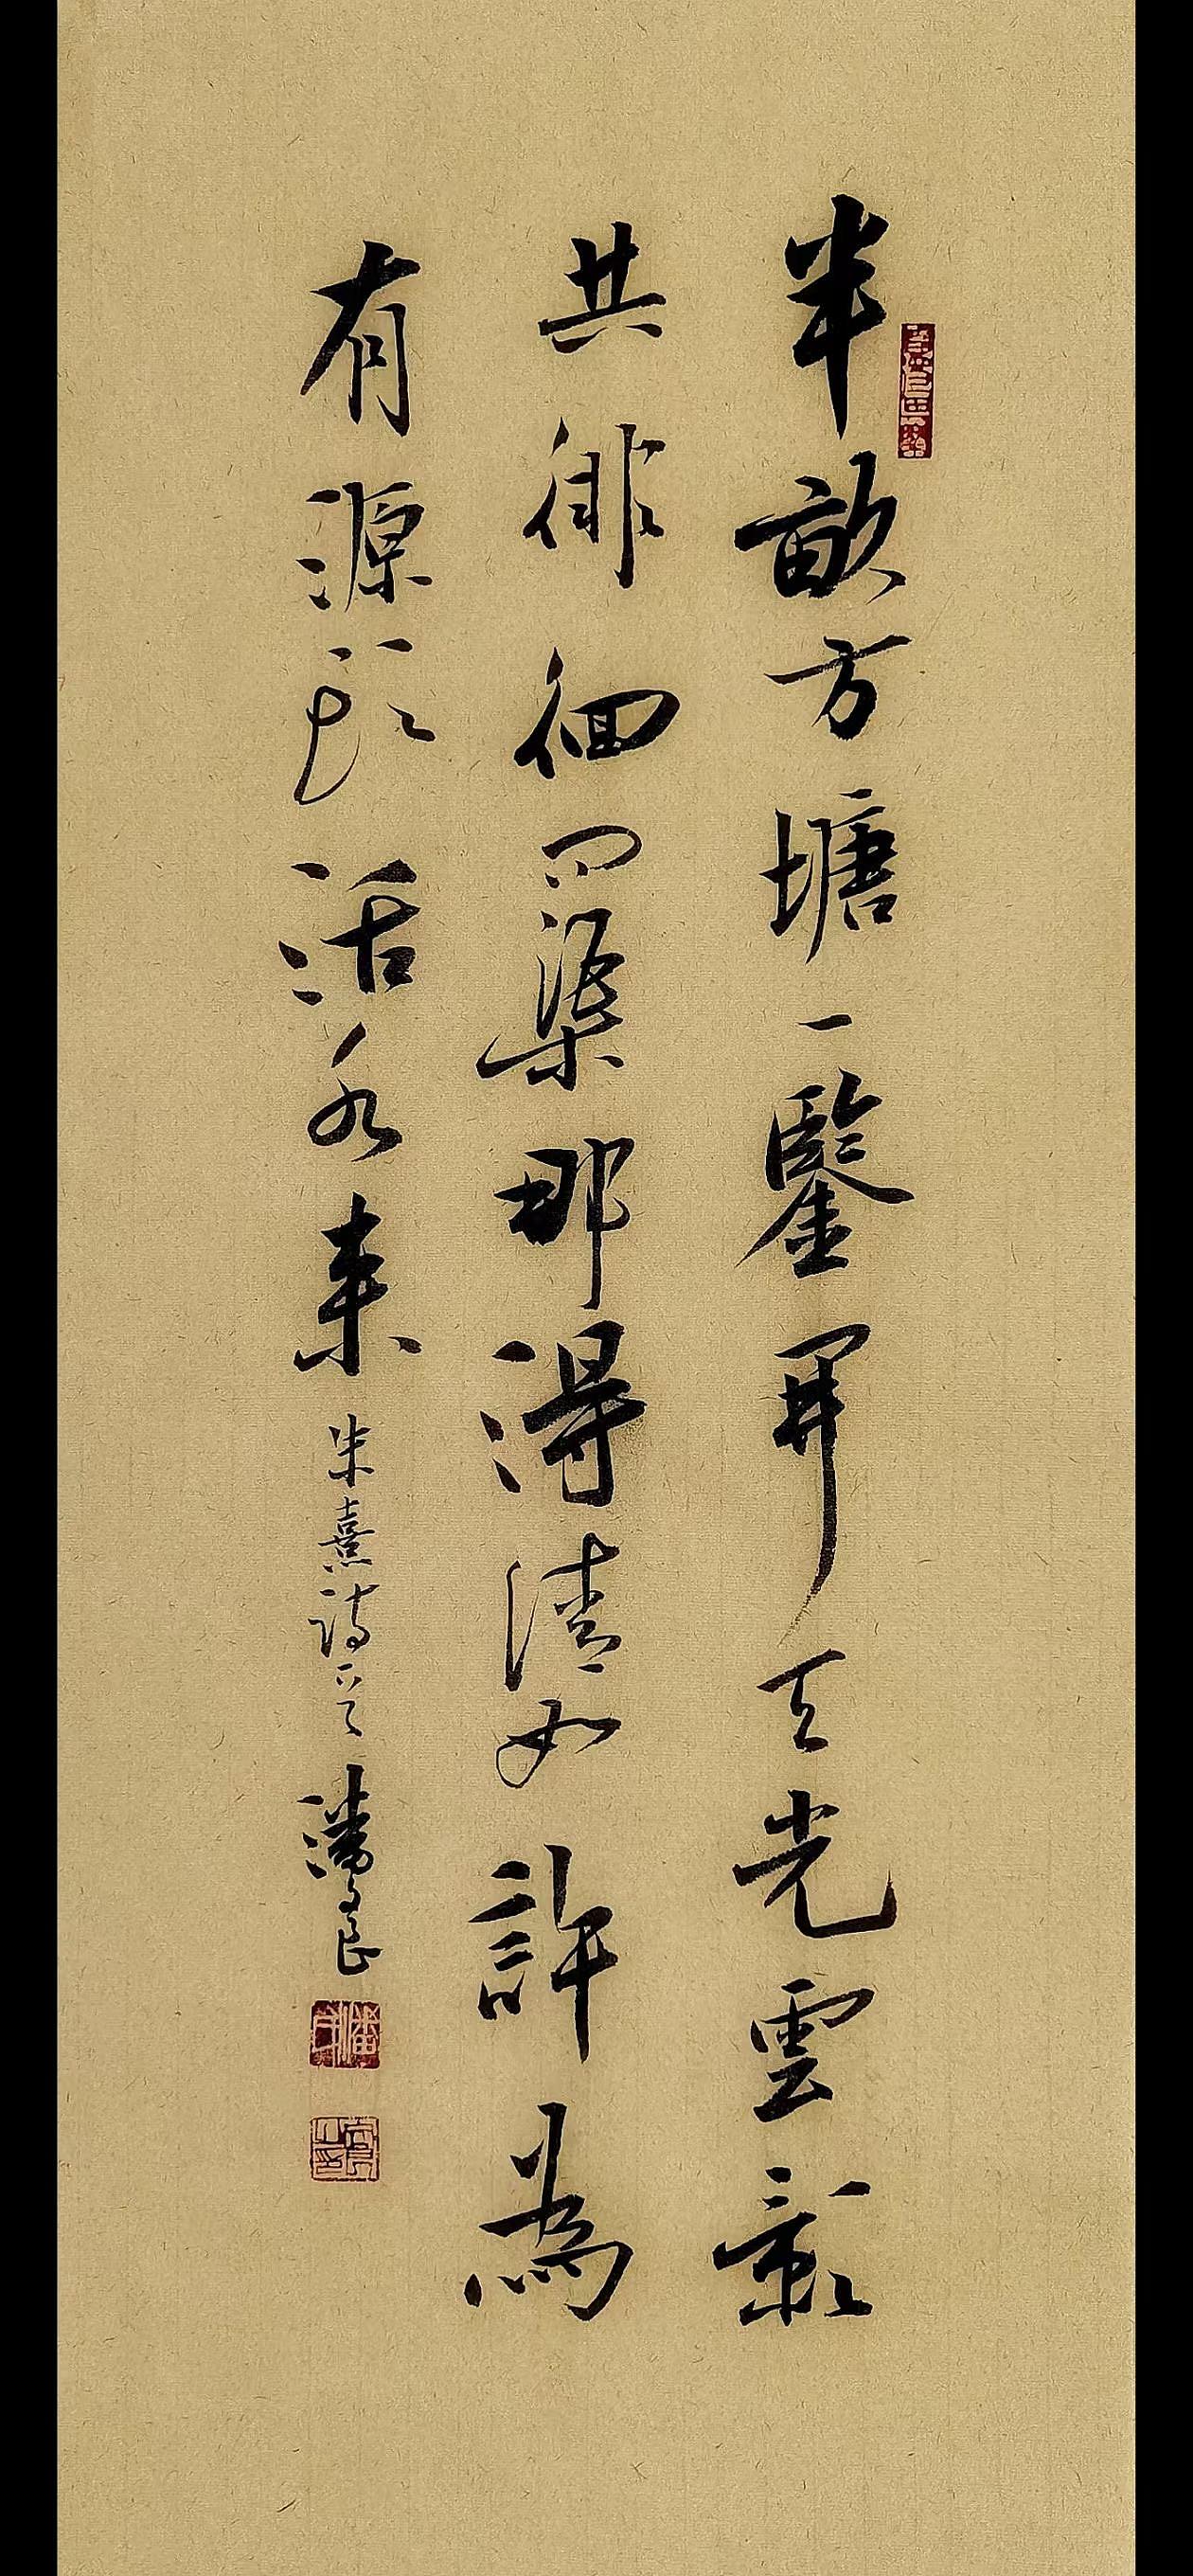 半畝方塘一鑒開天光雲影
共徘徊問渠那得清如許為
有源頭活水來 朱熹詩一首 潘良